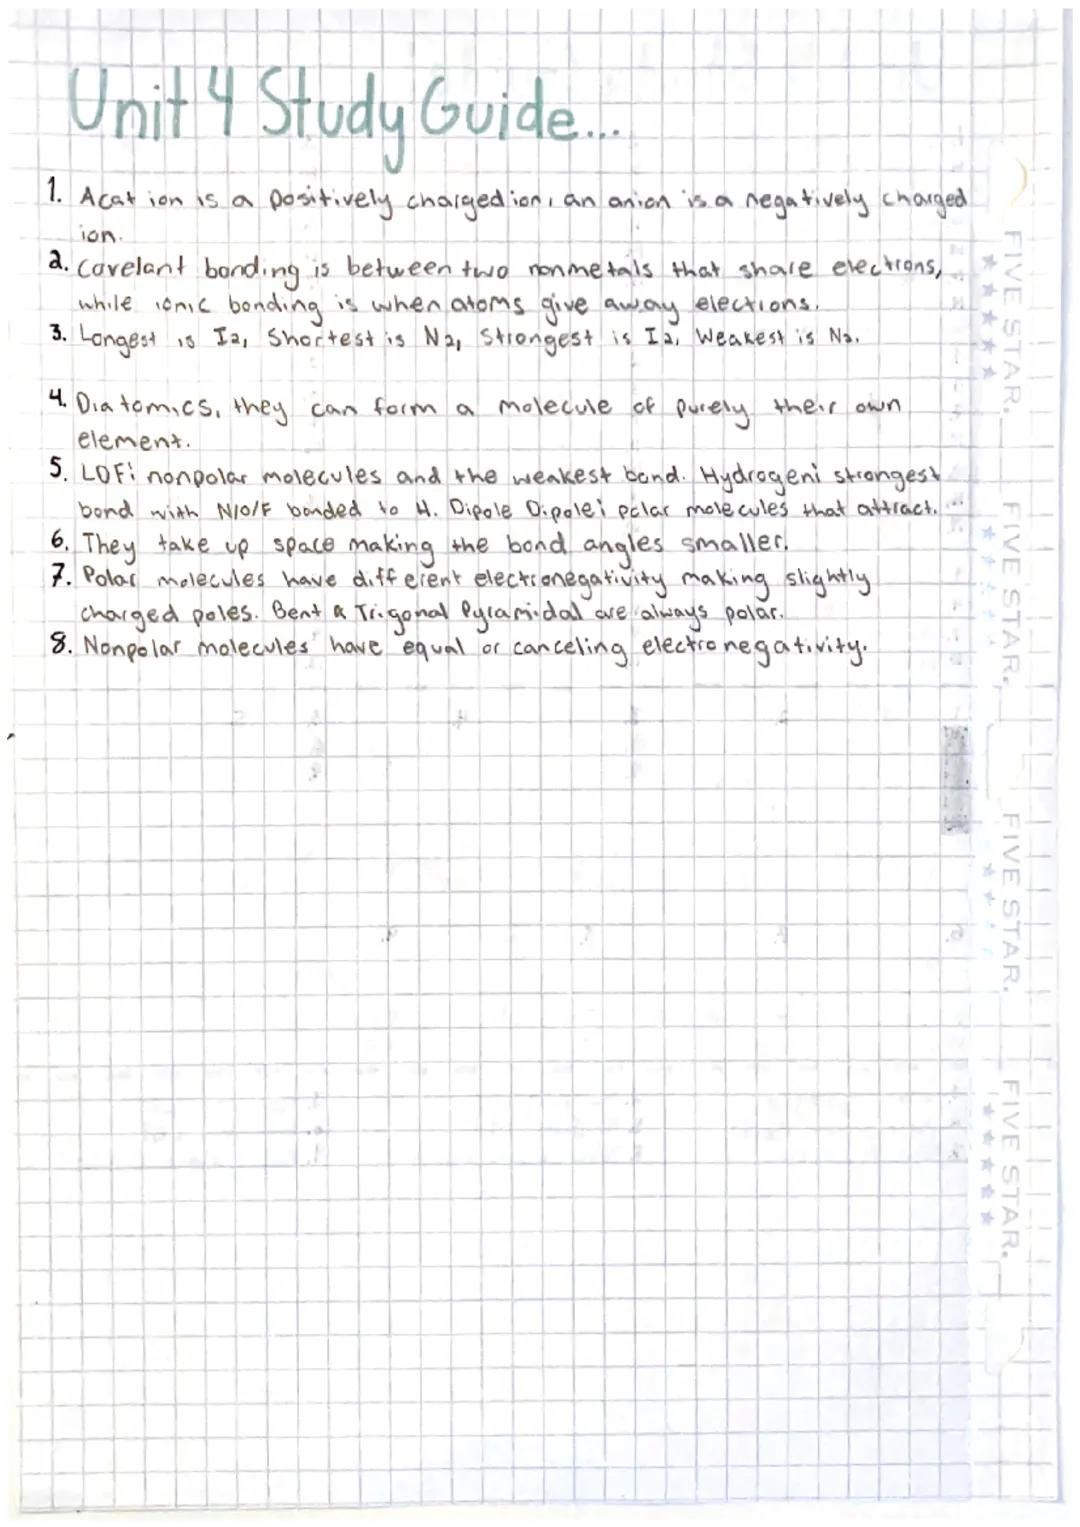 Unit 4 Study Guide...
1. A cation is a positively charged ion, an anion is a negatively charged
ion.
2. Covelant bonding is between two nonmetals that share electrons,
while ionic bonding is when atoms give away elections.
3. Longest is I2, Shortest is N2, Strongest is I2, Weakest is N2.
4. Diatomics, they can form a molecule of purely their own
element.
5. LDF: nonpolar molecules and the weakest bond. Hydrogen: strongest
bond with N/O/F bonded to H. Dipole Dipole: polar molecules that attract.
6. They take up space making the bond angles smaller.
7. Polar molecules have different electronegativity making slightly
charged poles. Bent & Trigonal Pyramidal are always polar.
8. Nonpolar molecules have equal or canceling electronegativity.
FIVE STAR.
FIVE STAR.
FIVE STAR.
FIVE STAR.